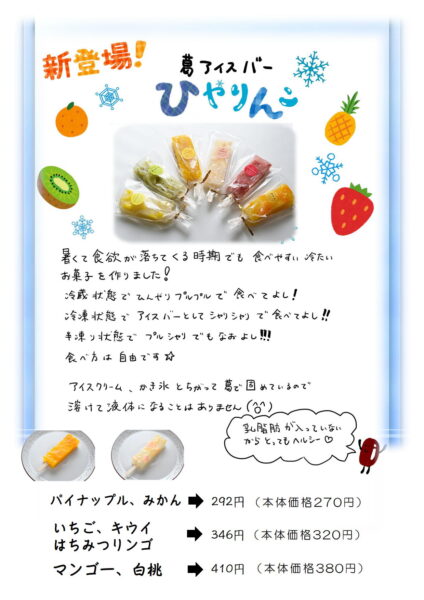 新登場!
葛アイスバー
ひやりんこ
暑くて食欲が落ちてくる時期でも食べやすい冷たい
お菓子を作りました!
冷蔵状態でひんやりプルプルで食べてよし!
冷凍状態でアイスバーとしてシャリシャリで食べてよし!!
半凍り状態でプルシャリでもなおよし!!!
食べ方は自由です☆
アイスクリーム、かき氷とちがって葛で固めているので
溶けて液体になることはありません(^o^)
乳脂肪が入っていない
からとってもヘルシー♡
パイナップル、みかん ➡ 292円 (本体価格270円)
いちご、キウイ
はちみつリンゴ ➡ 346円 (本体価格320円)
マンゴー、白桃 ➡ 410円 (本体価格380円)